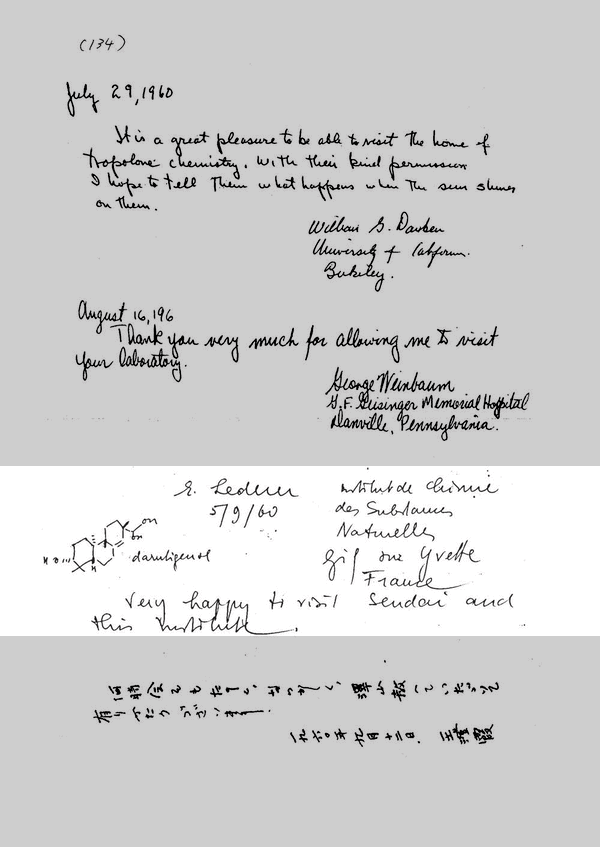 (134)
July 29, 1960
It is a great pleasure to be able to visit the home of
tropolone chemistry. With their kind permission
I hope to tell them what happens when the sun shines
on them.
William G. Dauben
University of California
Berkeley.
August 16, 196
Thank you very much for allowing me to visit
your laboratory.
George Weinbaum
G.F. Geisinger Memorial Hospital
Danville, Pennsylvania.
E. Lederer
5/9/60
Institut de Chimie
des Substances
Naturelles
Gif sur Yvette
France
HO
H
OH
OH
darutigenol
Very happy to visit Sendai and
this Institute.
教えていただいて
有りがとうございます.
一九六〇年九月十二日. 王